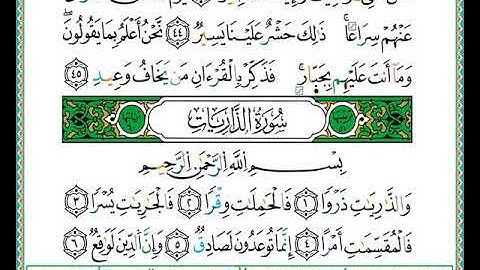 عَنْهُمْ سِرَاعًا ۚ ذَٰلِكَ حَشْرٌ عَلَيْنَا يَسِيرٌ ٤٤ نَّحْنُ أَعْلَمُ بِمَا يَقُولُونَ ۖ
وَمَا أَنتَ عَلَيْهِم بِجَبَّارٍ ۖ فَذَكِّرْ بِالْقُرْءَانِ مَن يَخَافُ وَعِيدِ ٤٥
سُورَةُ الذَّارِيَاتِ
بِسْمِ اللَّهِ الرَّحْمَٰنِ الرَّحِيمِ
وَالذَّارِيَاتِ ذَرْوًا ١ فَالْحَامِلَاتِ وِقْرًا ٢ فَالْجَارِيَاتِ يُسْرًا ٣
فَالْمُقَسِّمَاتِ أَمْرًا ٤ إِنَّمَا تُوعَدُونَ لَصَادِقٌ ٥ وَإِنَّ الدِّينَ لَوَاقِعٌ ٦